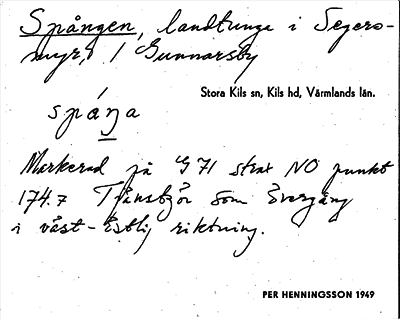 Spången, landtunge i Segers-
myr, i Gunnarsby
Stora Kils sn, Kils hd, Värmlands län.
spáŋa
Markerad på G 71 strax NO punkt
174.7 Tjänstgör som övergång
i väst-östlig riktning.
PER HENNINGSSON 1949